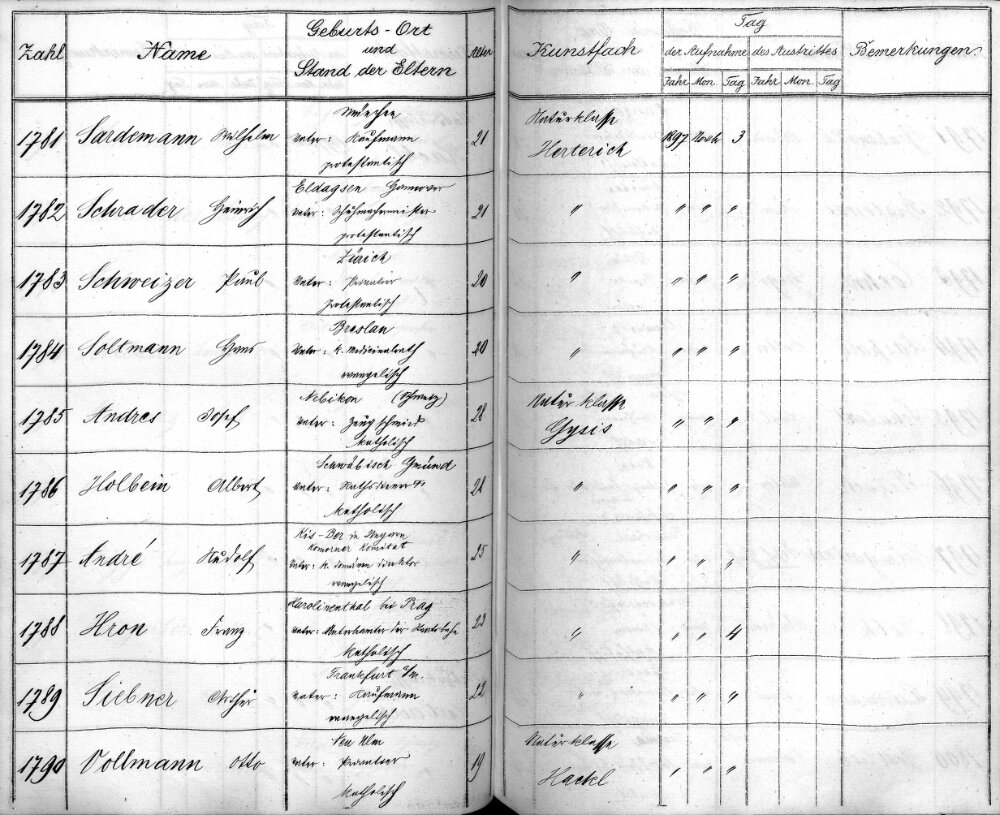 Zahl Name Geburts-Ort und Stand der Eltern Alter Kunstfach Tag der Aufnahme des Austrittes Bemerkungen
Jahr Mon. Tag Jahr Mon. Tag
1781 Sardemann Wilhelm
München
Vater: Kaufmann
protestantisch
21
Naturklasse
Herterich
1897 Novb 3
1782 Schrader Heinrich
Eldagsen - Hannover
Vater: Schuhmachermeister
protestantisch
21 " " " "
1783 Schweizer Paul
Zürich
Vater: Privatier
protestantisch
20 " " " "
1784 Soltmann Hans
Breslau
Vater: k. Medicinalrath
evangelisch
20 " " " "
1785 Andres Josef
Nebikon (Schweiz)
Vater: Zeugschmied
katholisch
28
Naturklasse
Gysis
" " "
1786 Holbein Albert
Schwäbisch Gmünd
Vater:
katholisch
" " " "
1787 André Rudolf
Kis-Ber in Ungarn
Komorner Komitat
Vater: k. Domänendirektor
evangelisch
25 " " " "
1788 Hron Franz
Karolinenthal bei Prag
Vater: der
katholisch
23 " " " 4
1789 Siebner Arthur
Frankfurt a/m.
Vater: Kaufmann
evangelisch
22 " " " "
1790 Vollmann Otto
Neu Ulm
Vater: Privatier
katholisch
19
Naturklasse
Hackl
" " "